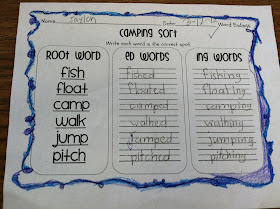 Name Jaylon Date Word Endings
CAMPING SORT
Write each word in the correct spot.
ROOT WORD ED WORDS ING WORDS
fish fished fishing
float floated floating
camp camped camping
walk walked walking
jump jumped jumping
pitch pitched pitching